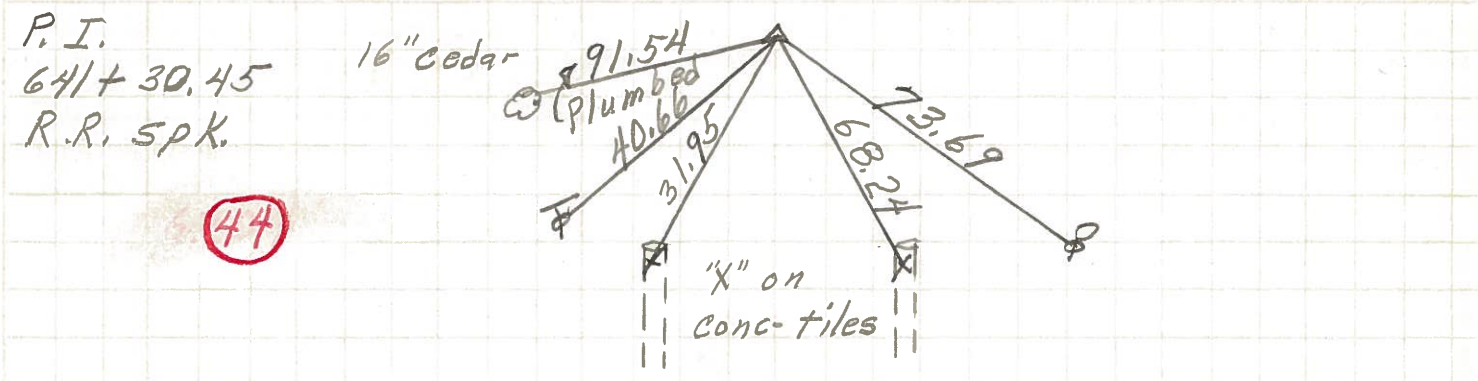 P. I.
641+30.45
R.R. spk.
44
16" cedar
91.54
(plumbed
40.66
31.95
68.24
73.69
"X" on
conc-tiles